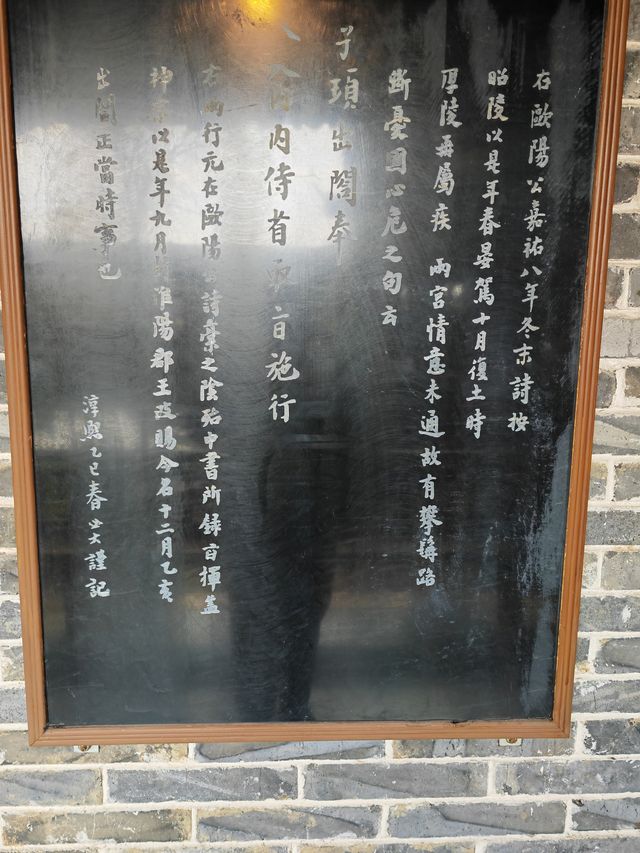 右歐陽公嘉祐八年冬末詩按
昭陵以是年春晏駕十月復土時
厚陵再屬疾 兩宮情意未通故有攀髯路
斷憂國心危之句云
子頊出閤奉
內侍省取旨施行
右兩行元在歐陽公詩稾之陰殆中書所錄旨揮蓋
神宗以是年九月淮陽郡王改賜今名十二月乙亥
出閤正當時事也
淳熙乙巳春必大謹記